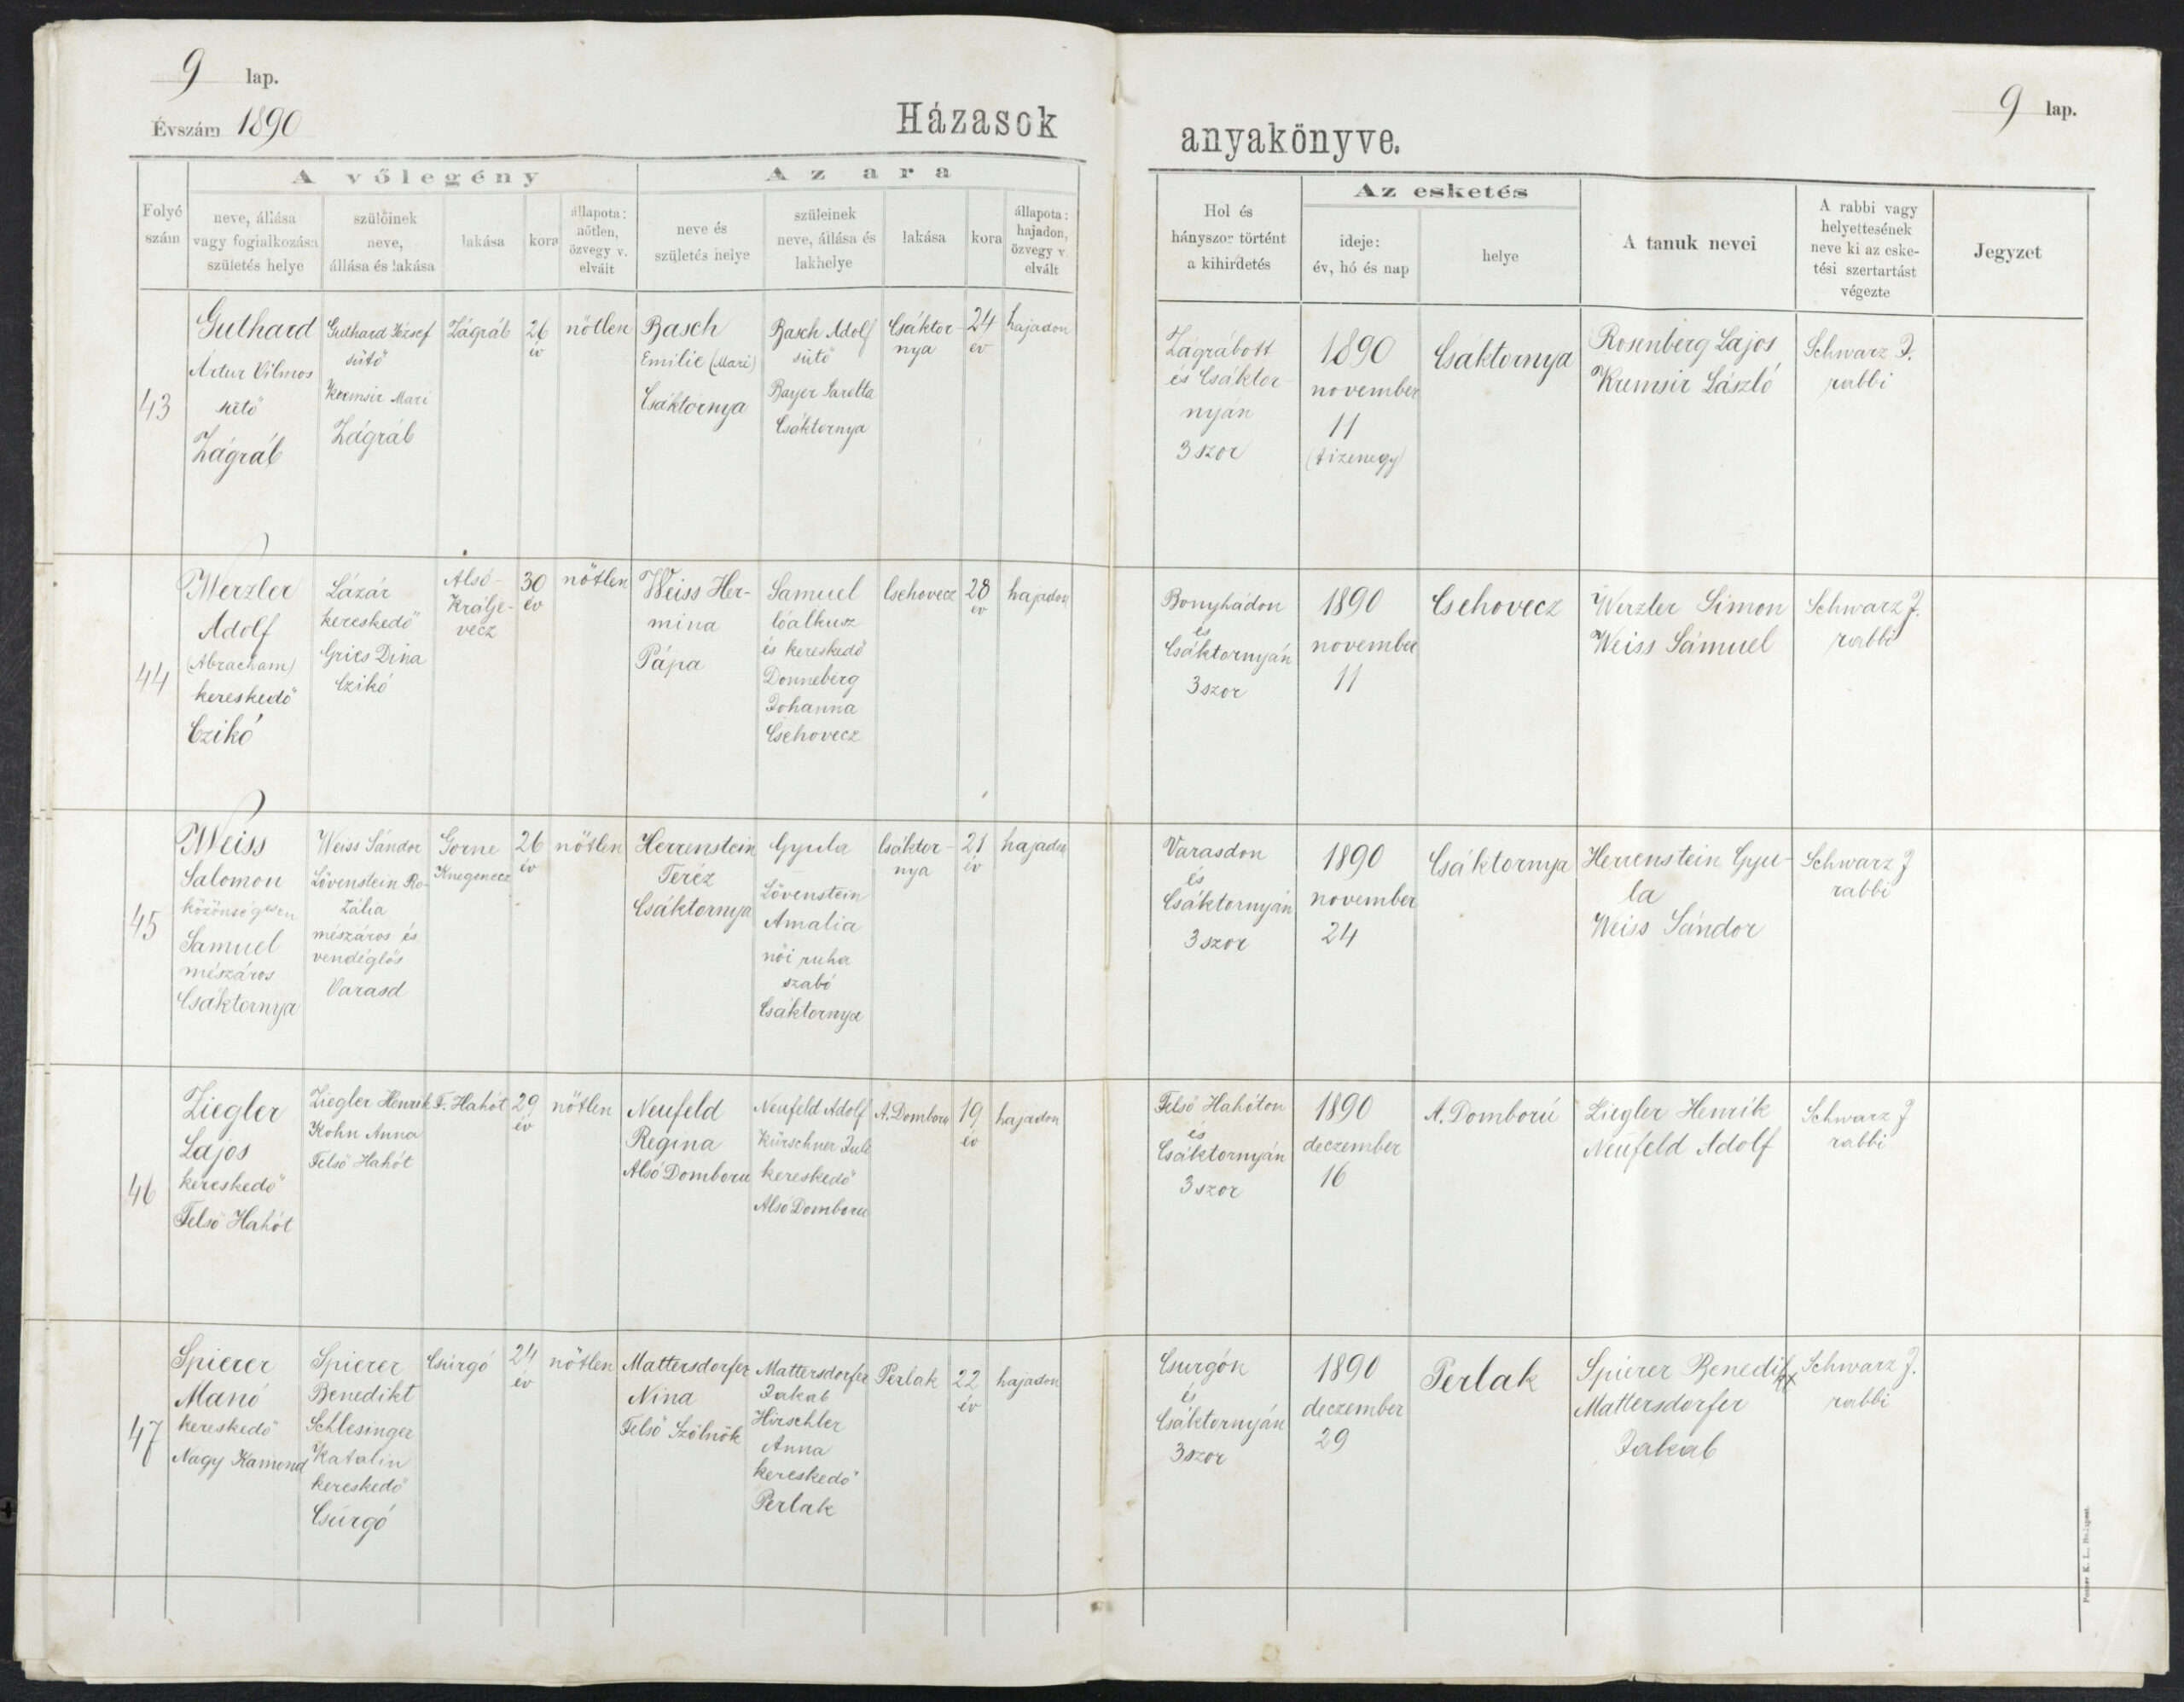 9 lap.
Évszám 1890
Házasok
anyakönyve.
9 lap.
Folyó szám
A vőlegény
neve, állása
vagy foglalkozása
születés helye
szülőinek
neve,
állása és lakása
lakása
kora
állapota:
nőtlen,
özvegy v.
elvált
Az ara
neve és
születés helye
szüleinek
neve, állása és
lakhelye
lakása
kora
állapota:
hajadon,
özvegy v
elvált
Hol és
hányszor történt
a kihirdetés
Az esketés
ideje:
év, hó és nap
helye
A tanuk nevei
A rabbi vagy
helyettesének
neve ki az eske-
tési szertartást
végezte
Jegyzet
43
Guthard
Artur Vilmos
sütő
Zágráb
Guthard József
sütő
Kremsir Mari
Zágráb
Zágráb
26
év
nőtlen
Basch
Emilie (Mari)
Csáktornya
Basch Adolf
sütő
Bayer Sarolta
Csáktornya
Csáktor-
nya
24
év
hajadon
Zágrábott
és Csáktor-
nyán
3 szor
1890
november
11
(tizenegy)
Csáktornya
Rosenberg Lajos
Kremsir László
Schwarz J.
rabbi
44
Werzler
Adolf
(Abracham)
kereskedő
Czikó
Lázár
kereskedő
Gries Dina
Czikó
Alsó-
Králje-
vecz
30
év
nőtlen
Weiss Her-
mina
Pápa
Samuel
lóalkusz
és kereskedő
Donneberg
Johanna
Csehovecz
Csehovecz
28
év
hajadon
Bonyhádon
és
Csáktornyán
3szor
1890
november
11
Csehovecz
Werzler Simon
Weiss Sámuel
Schwarz J.
rabbi
45
Weiss
Salomon
közönségesen
Samuel
mészáros
Csáktornya
Weiss Sándor
Lövenstein Ro-
zália
mészáros és
vendéglős
Varasd
Gorne
Knegenecz
26
év
nőtlen
Herrenstein
Teréz
Csáktornya
Gyula
Lövenstein
Amalia
női ruha
szabó
Csáktornya
Csáktor-
nya
21
év
hajadon
Varasdon
és
Csáktornyán
3szor
1890
november
24
Csáktornya
Herrenstein Gyu-
la
Weiss Sándor
Schwarz J
rabbi
46
Ziegler
Lajos
kereskedő
Felső Hahót
Ziegler Henrik
Kohn Anna
Felső Hahót
F. Hahót
29
év
nőtlen
Neufeld
Regina
Alsó Domboru
Neufeld Adolf
Kürschner Juli
kereskedő
Alsó Domboru
A. Domboru
19
év
hajadon
Felső Hahóton
és
Csáktornyán
3szor
1890
deczember
16
A. Domború
Ziegler Henrik
Neufeld Adolf
Schwarz J
rabbi
47
Spierer
Manó
kereskedő
Nagy Kamond
Spierer
Benedikt
Schlesinger
Katalin
kereskedő
Csúrgó
Csúrgó
24
év
nőtlen
Mattersdorfer
Nina
Felső Szölnök
Mattersdorfer
Jakab
Hirschler
Anna
kereskedő
Perlak
Perlak
22
év
hajadon
Csurgón
és
Csáktornyán
3szor
1890
deczember
29
Perlak
Spierer Benedikt
Mattersdorfer
Jakab
Schwarz J.
rabbi